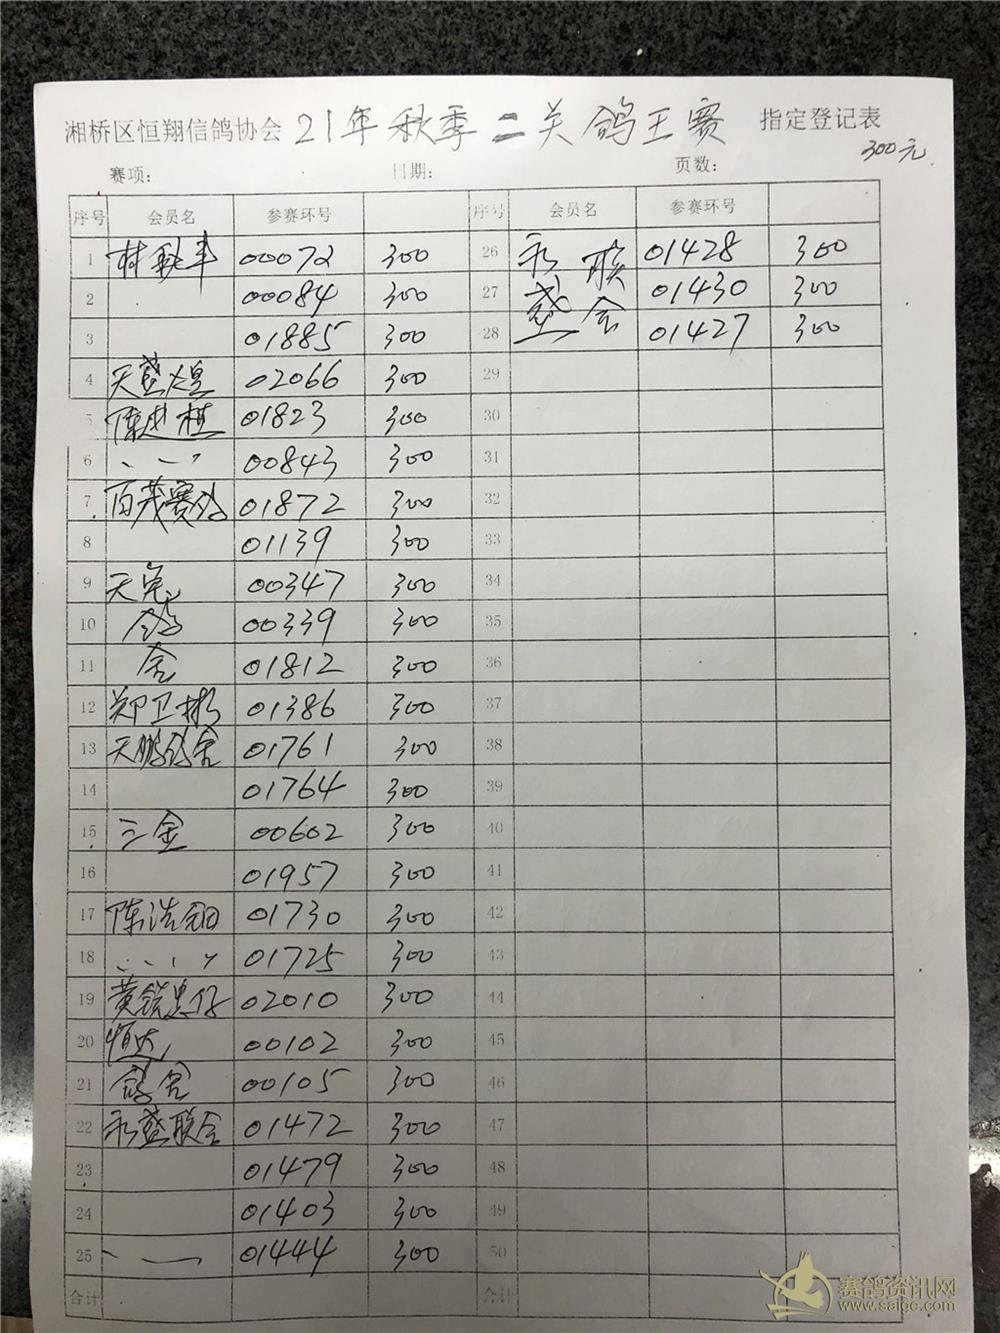 湘桥区恒翔信鸽协会 21年 秋季 二关 鸽王赛 指定登记表
300元
赛项: 日期: 页数:
序号 会员名 参赛环号 序号 会员名 参赛环号
1 林秋丰 00072 300 26 永联 01428 300
2 00084 300 27 盛会 01430 300
3 01885 300 28 01427 300
4 天盛煌 02066 300 29
5 陈建植 01823 300 30
6 00843 300 31
7 百茂赛鸽 01872 300 32
8 01139 300 33
9 天宠 00347 300 34
10 鸽 00339 300 35
11 舍 01812 300 36
12 郑卫彬 01386 300 37
13 天鹏鸽舍 01761 300 38
14 01764 300 39
15 三金 00602 300 40
16 01957 300 41
17 陈浩钿 01730 300 42
18 01725 300 43
19 黄 仔 02010 300 44
20 恒达 00102 300 45
21 鸽舍 00105 300 46
22 永盛联会 01472 300 47
23 01479 300 48
24 01403 300 49
25 01444 300 50
合计 合计
赛鸽资讯网
www.saige.com